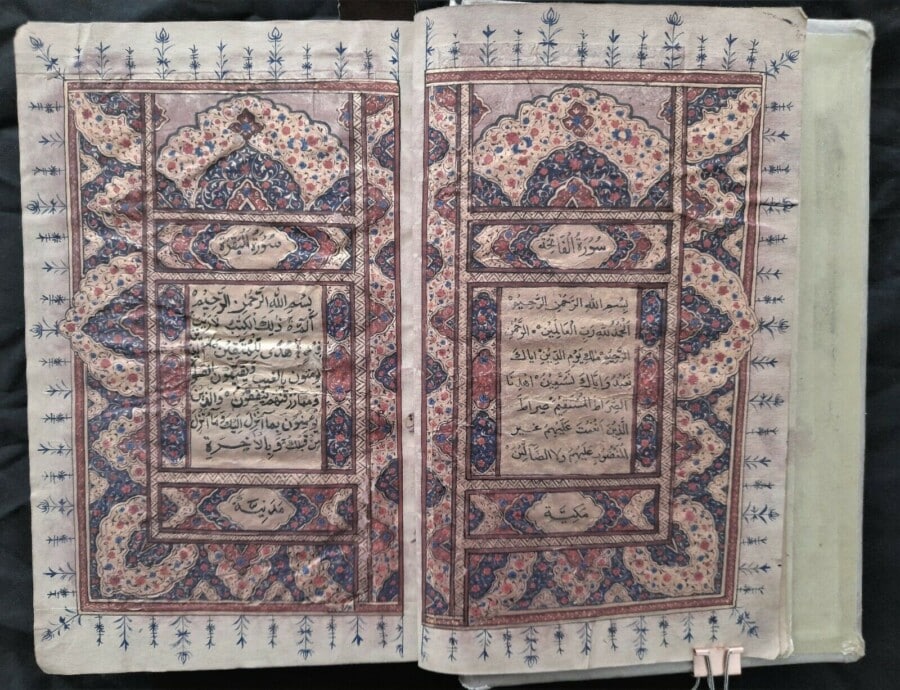 سورة الفاتحة
بسم الله الرحمن الرحيم
الحمد لله رب العالمين الرحمن
الرحيم ملك يوم الدين اياك
نعبد واياك نستعين اهدنا
الصراط المستقيم صراط
الذين انعمت عليهم غير
المغضوب عليهم ولا الضالين
مكية
سورة البقرة
بسم الله الرحمن الرحيم
الم ذلك الكتب لا ريب
فيه هدى للمتقين الذين
يؤمنون بالغيب ويقيمون الصلوة
ومما رزقنهم ينفقون والذين
يؤمنون بما انزل اليك وما انزل
من قبلك وبالاخرة
مدنية